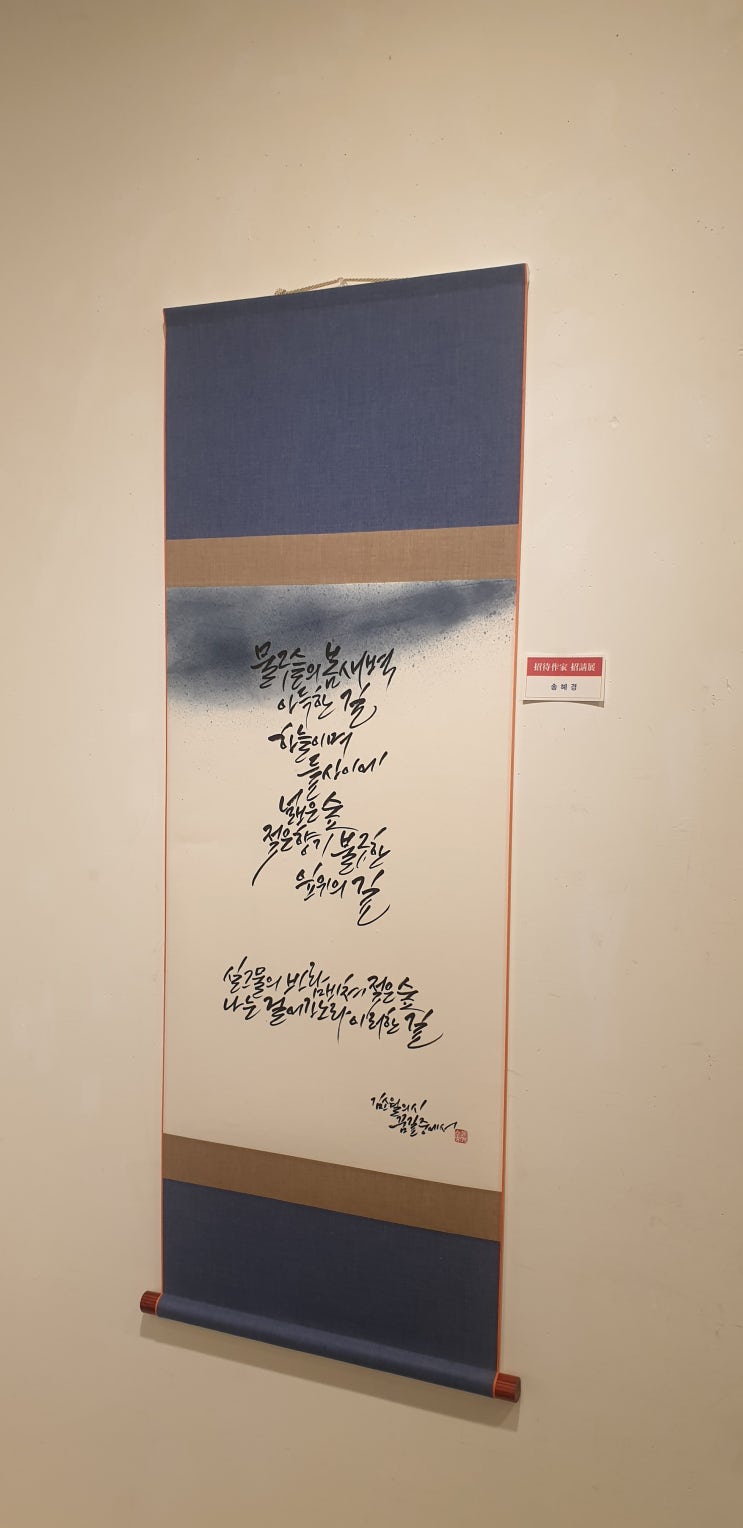 물구슬의 봄새벽
아득한 길
하늘이며
들사이에
넓은 숲
젖은향기 불긋한
잎위의 길
실그물의 바람비쳐 젖은 숲
나는 걸어가노라 이러한 길
김소월의 시
꿈길 중에서
招待作家 招請展
송혜경